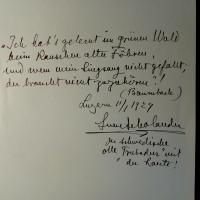 „Ich hab's gelernt im grünen Wald
beim Rauschen alter Föhren,
und wem mein Singsang nicht gefällt,
der braucht nicht zuzuhören"!
(Baumbach)
Luzern 11/1 1929
Sven Scholander
der schwedische
alte Troubadour mit
der Laute!